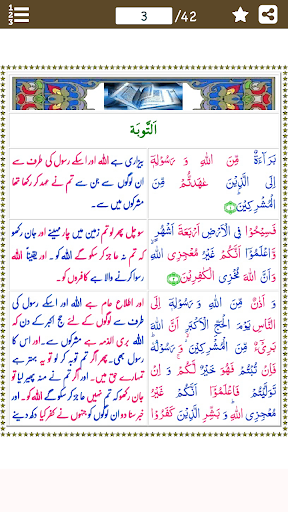 3 /42
اَلتَّوبَة
بَرَآءَةٌ مِّنَ اللّٰهِ وَ رَسُوْلِهٖۤ
اِلَى الَّذِیْنَ عٰهَدْتُّمْ مِّنَ
الْمُشْرِكِیْنَ
بیزاری ہے اللہ اور اسکے رسول کی طرف سے
ان لوگوں سے جن سے تم نے عہد کر رکھا تھا
مشرکوں میں سے۔
فَسِیْحُوْا فِی الْاَرْضِ اَرْبَعَةَ اَشْهُرٍ
وَّاعْلَمُوْۤا اَنَّكُمْ غَیْرُ مُعْجِزِی اللّٰهِ
وَ اَنَّ اللّٰهَ مُخْزِی الْكٰفِرِیْنَ
سو چل پھر لو تم زمین میں چار مہینے اور جان رکھو
کہ تم نہ عاجز کر سکو گے اللہ کو۔ اور یقیناً اللہ
رسوا کرنے والا ہے کافروں کو۔
وَ اَذَانٌ مِّنَ اللّٰهِ وَ رَسُوْلِهٖۤ اِلَى
النَّاسِ یَوْمَ الْحَجِّ الْاَكْبَرِ اَنَّ اللّٰهَ
بَرِیْٓءٌ مِّنَ الْمُشْرِكِیْنَ وَ رَسُوْلُهٗ
فَاِنْ تُبْتُمْ فَهُوَ خَیْرٌ لَّكُمْ وَ اِنْ
تَوَلَّیْتُمْ فَاعْلَمُوْۤا اَنَّكُمْ غَیْرُ
مُعْجِزِی اللّٰهِ وَ بَشِّرِ الَّذِیْنَ كَفَرُوْا
اور اطلاع عام ہے اللہ اور اسکے رسول کی
طرف سے لوگوں کے لئے حج اکبر کے دن کہ
اللہ بری الذمہ ہے مشرکوں سے۔ اور اس کا
رسول بھی۔ پھر اگر تم توبہ کر لو تو یہ بہتر ہے
تمہارے حق میں۔ اور اگر تم نے منہ پھیر لیا تو
جان رکھو کہ تم نہیں عاجز کر سکو گے اللہ کو۔ اور
خبر سنا دو ان لوگوں کو جنہوں نے کفر کیا دکھ دینے